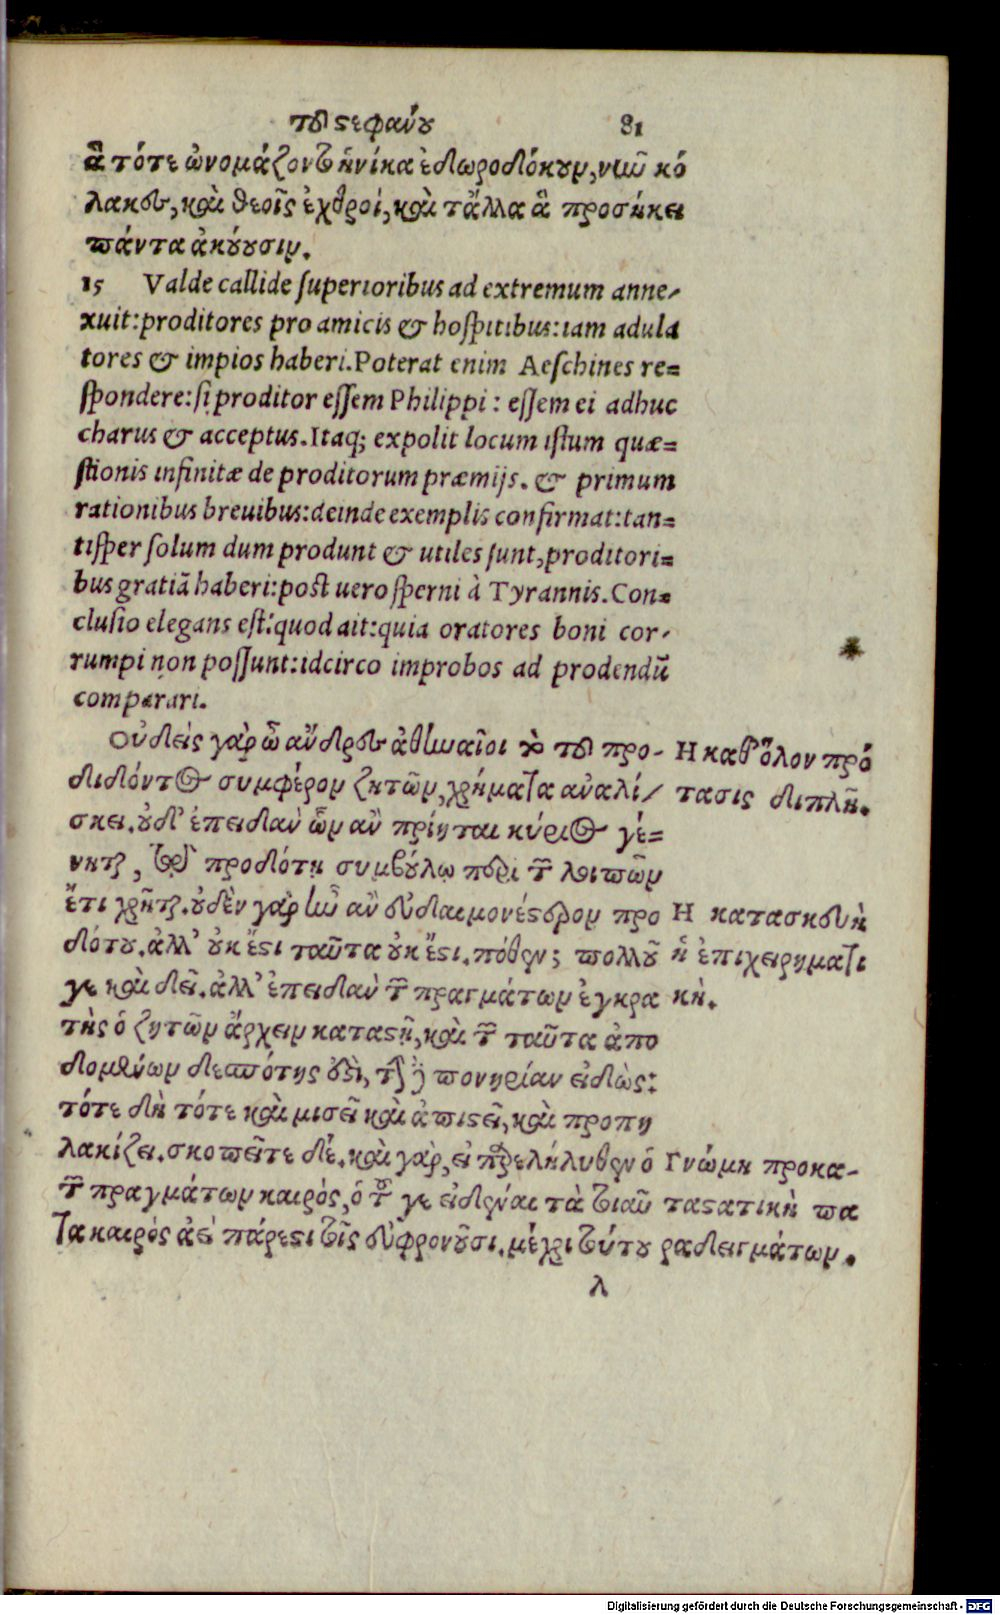 τοῦ στεφάνου 81
ἃ τότε ὠνομάζοντο ἡνίκα ἐδωροδόκουν, νῦν κό
λακες, καὶ θεοῖς ἐχθροί, καὶ τἄλλα ἃ προσήκει
πάντα ἀκούουσιν.
15 Valde callide superioribus ad extremum anne-
xuit: proditores pro amicis & hospitibus: iam adula
tores & impios haberi. Poterat enim Aeschines re=
spondere: si proditor essem Philippi: essem ei adhuc
charus & acceptus. Itaq; expolit locum istum quæ=
stionis infinitæ de proditorum præmijs. & primum
rationibus breuibus: deinde exemplis confirmat: tan=
tisper solum dum produnt & utiles sunt, proditori=
bus gratiã haberi: post uero sperni à Tyrannis. Con=
clusio elegans est: quod ait: quia oratores boni cor-
rumpi non possunt: idcirco improbos ad prodendũ
comparari.
Οὐδεὶς γὰρ ὦ ἄνδρες ἀθηναῖοι τὸ τοῦ προ-
διδόντος συμφέρον ζητῶν, χρήματα ἀναλί-
σκει. οὐδ' ἐπειδὰν ὧν ἂν πρίηται κύριος γέ=
νηται, τῷ προδότῃ συμβούλῳ περὶ τῶν λοιπῶν
ἔτι χρῆται. οὐδὲν γὰρ ἦν ἂν εὐδαιμονέστερον προ
δότου. ἀλλ' οὐκ ἔστι ταῦτα οὐκ ἔστι. πόθεν; πολλοῦ
γε καὶ δεῖ. ἀλλ' ἐπειδὰν τῶν πραγμάτων ἐγκρα
τὴς ὁ ζητῶν ἄρχειν καταστῇ, καὶ τῶν ταῦτα ἀπο
δομένων δεσπότης ἐστὶ, τὴν δὲ πονηρίαν εἰδὼς:
τότε δὴ τότε καὶ μισεῖ καὶ ἀπιστεῖ, καὶ προπη
λακίζει. σκοπεῖτε δέ. καὶ γὰρ, εἰ παρελήλυθεν ὁ
τῶν πραγμάτων καιρὸς, ὁ τοῦ γε εἰδέναι τὰ τοιαῦ
τα καιρὸς ἀεὶ πάρεστι τοῖς εὖ φρονοῦσι. μέχρι τούτου
λ
Η καθ' ὅλον πρό
τασις διπλῆ.
Η κατασκευὴ
ἡ ἐπιχειρηματι
κή.
Γνώμη προκα-
ταστατικὴ πα
ραδειγμάτων.
Digitalisierung gefördert durch die Deutsche Forschungsgemeinschaft - DFG